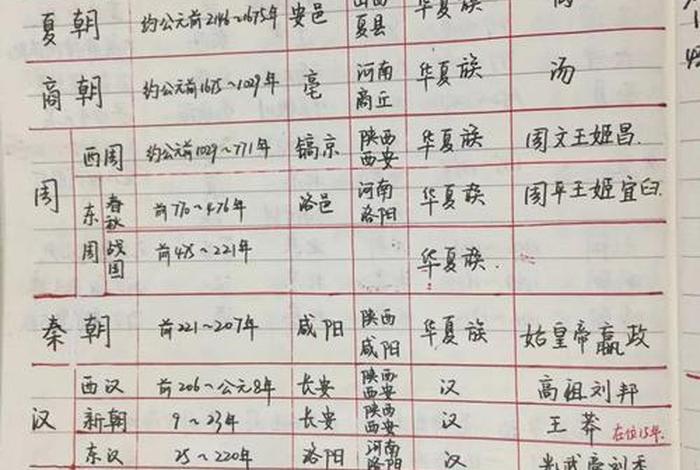 夏朝 约公元前2146~1675年 安邑 山西夏县 华夏族
商朝 约公元前1675~1029年 亳 河南商丘 华夏族 汤
周 西周 约公元前1029~771年 镐京 陕西西安 华夏族 周文王姬昌.
东周 春秋 前770~476年 洛邑 河南洛阳 华夏族 周平王姬宜臼
战国 前475~221年 华夏族.
秦朝 前221~207年 咸阳 陕西咸阳 华夏族 始皇帝嬴政
汉 西汉 前206~公元8年 长安 陕西西安 汉 高祖刘邦
新朝 9~23年 长安 陕西西安 汉 王莽 在位15年.
东汉 25~220年 洛阳 河南洛阳 汉 光武帝刘秀